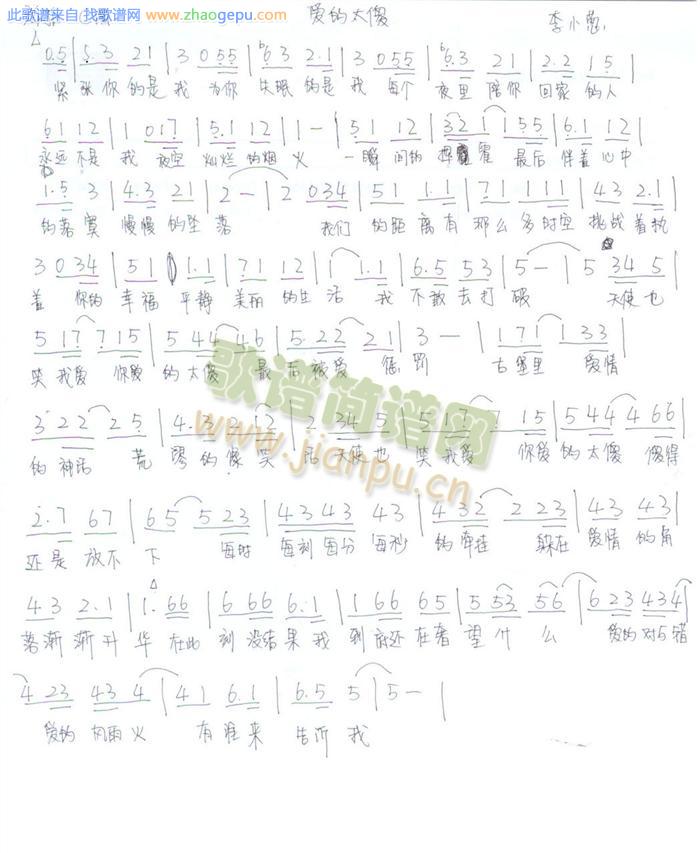 此歌谱来自：找歌谱网 www.zhaogepu.com
爱的太傻 李小葱
0.5 | 5.3 21 | 3 055 | 6.3 2.1 | 3 055 | 6.3 21 | 2.2 15 |
紧张你的是我 为你失眠的是我 每个夜里陪你回家的人
61 12 | 1 017 | 5.1 12 | 1 - | 51 12 | 32 1 | 1 55 | 6.1 12 |
永远不是我 夜空灿烂的烟火 一瞬间的挥霍 最后伴着心中
1.5 3 | 4.3 21 | 2 - | 2 034 | 51 1.1 | 71 111 | 43 2.1 |
的落寞 慢慢的坠落 我们的距离有那么多时空挑战着执
3 034 | 51 1.1 | 71 12 | 1 1.1 | 6.5 53 | 5 - | 5 34 5 |
着 你的幸福平静美丽的生活 我不敢去打破 天使也
5 17 7 15 | 5 44 46 | 5.22 21 | 3 - | 171 133 |
笑我爱 你爱的太傻 最后被爱惩罚 古堡里 爱情
3 22 25 | 4.3 2 12 | 2 34 5 | 5 17 7 15 | 5 44 4 66 |
的神话 荒谬的像笑话 天使也笑我爱 你爱的太傻 傻得
歌谱简谱网
www.jianpu.cn
2.7 67 | 65 5 23 | 43 43 43 | 4 32 2 23 | 43 43 |
还是放不下 每时每刻每分每秒的牵挂 躲在爱情的角
43 2.1 | 1. 66 | 6 66 6.1 | 1 66 65 | 5 53 56 | 6 23 434 |
落渐渐升华 在此刻没结果我到底还在奢望什么 爱的对与错
4 23 43 4 | 41 6.1 | 6.5 5 | 5 - |
爱的 雨火 有谁来告诉我